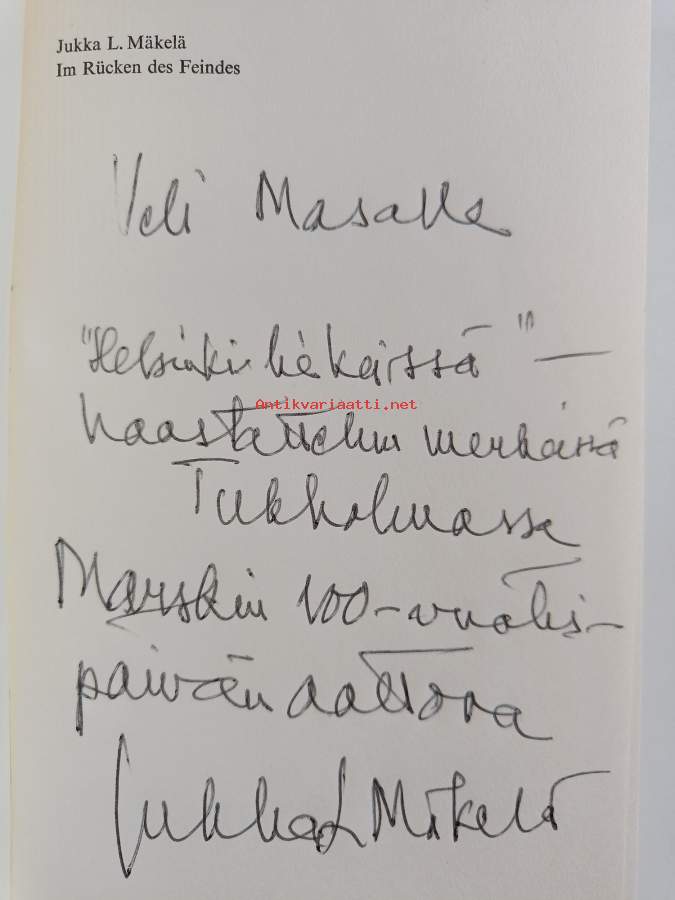 Jukka L. Mäkelä
Im Rücken des Feindes
Veli Masalle
"Helsinki-
Antikvariaatti.net
haastattelun merkeissä
Tukholmassa
Marskin 100-vuotis-
päivän aattona
Jukka L Mäkelä